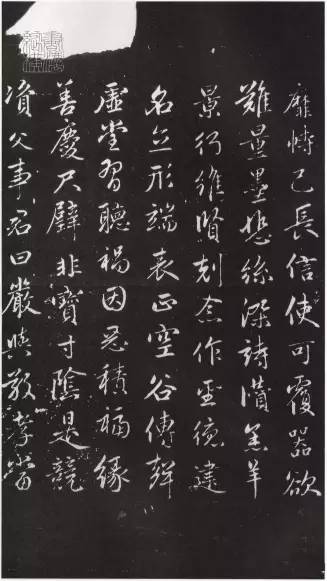 靡恃己長信使可覆器欲
難量墨悲絲染詩讚羔羊
景行維賢剋念作聖德建
名立形端表正空谷傳聲
虛堂習聽禍因惡積福緣
善慶尺璧非寶寸陰是競
資父事君曰嚴與敬孝當